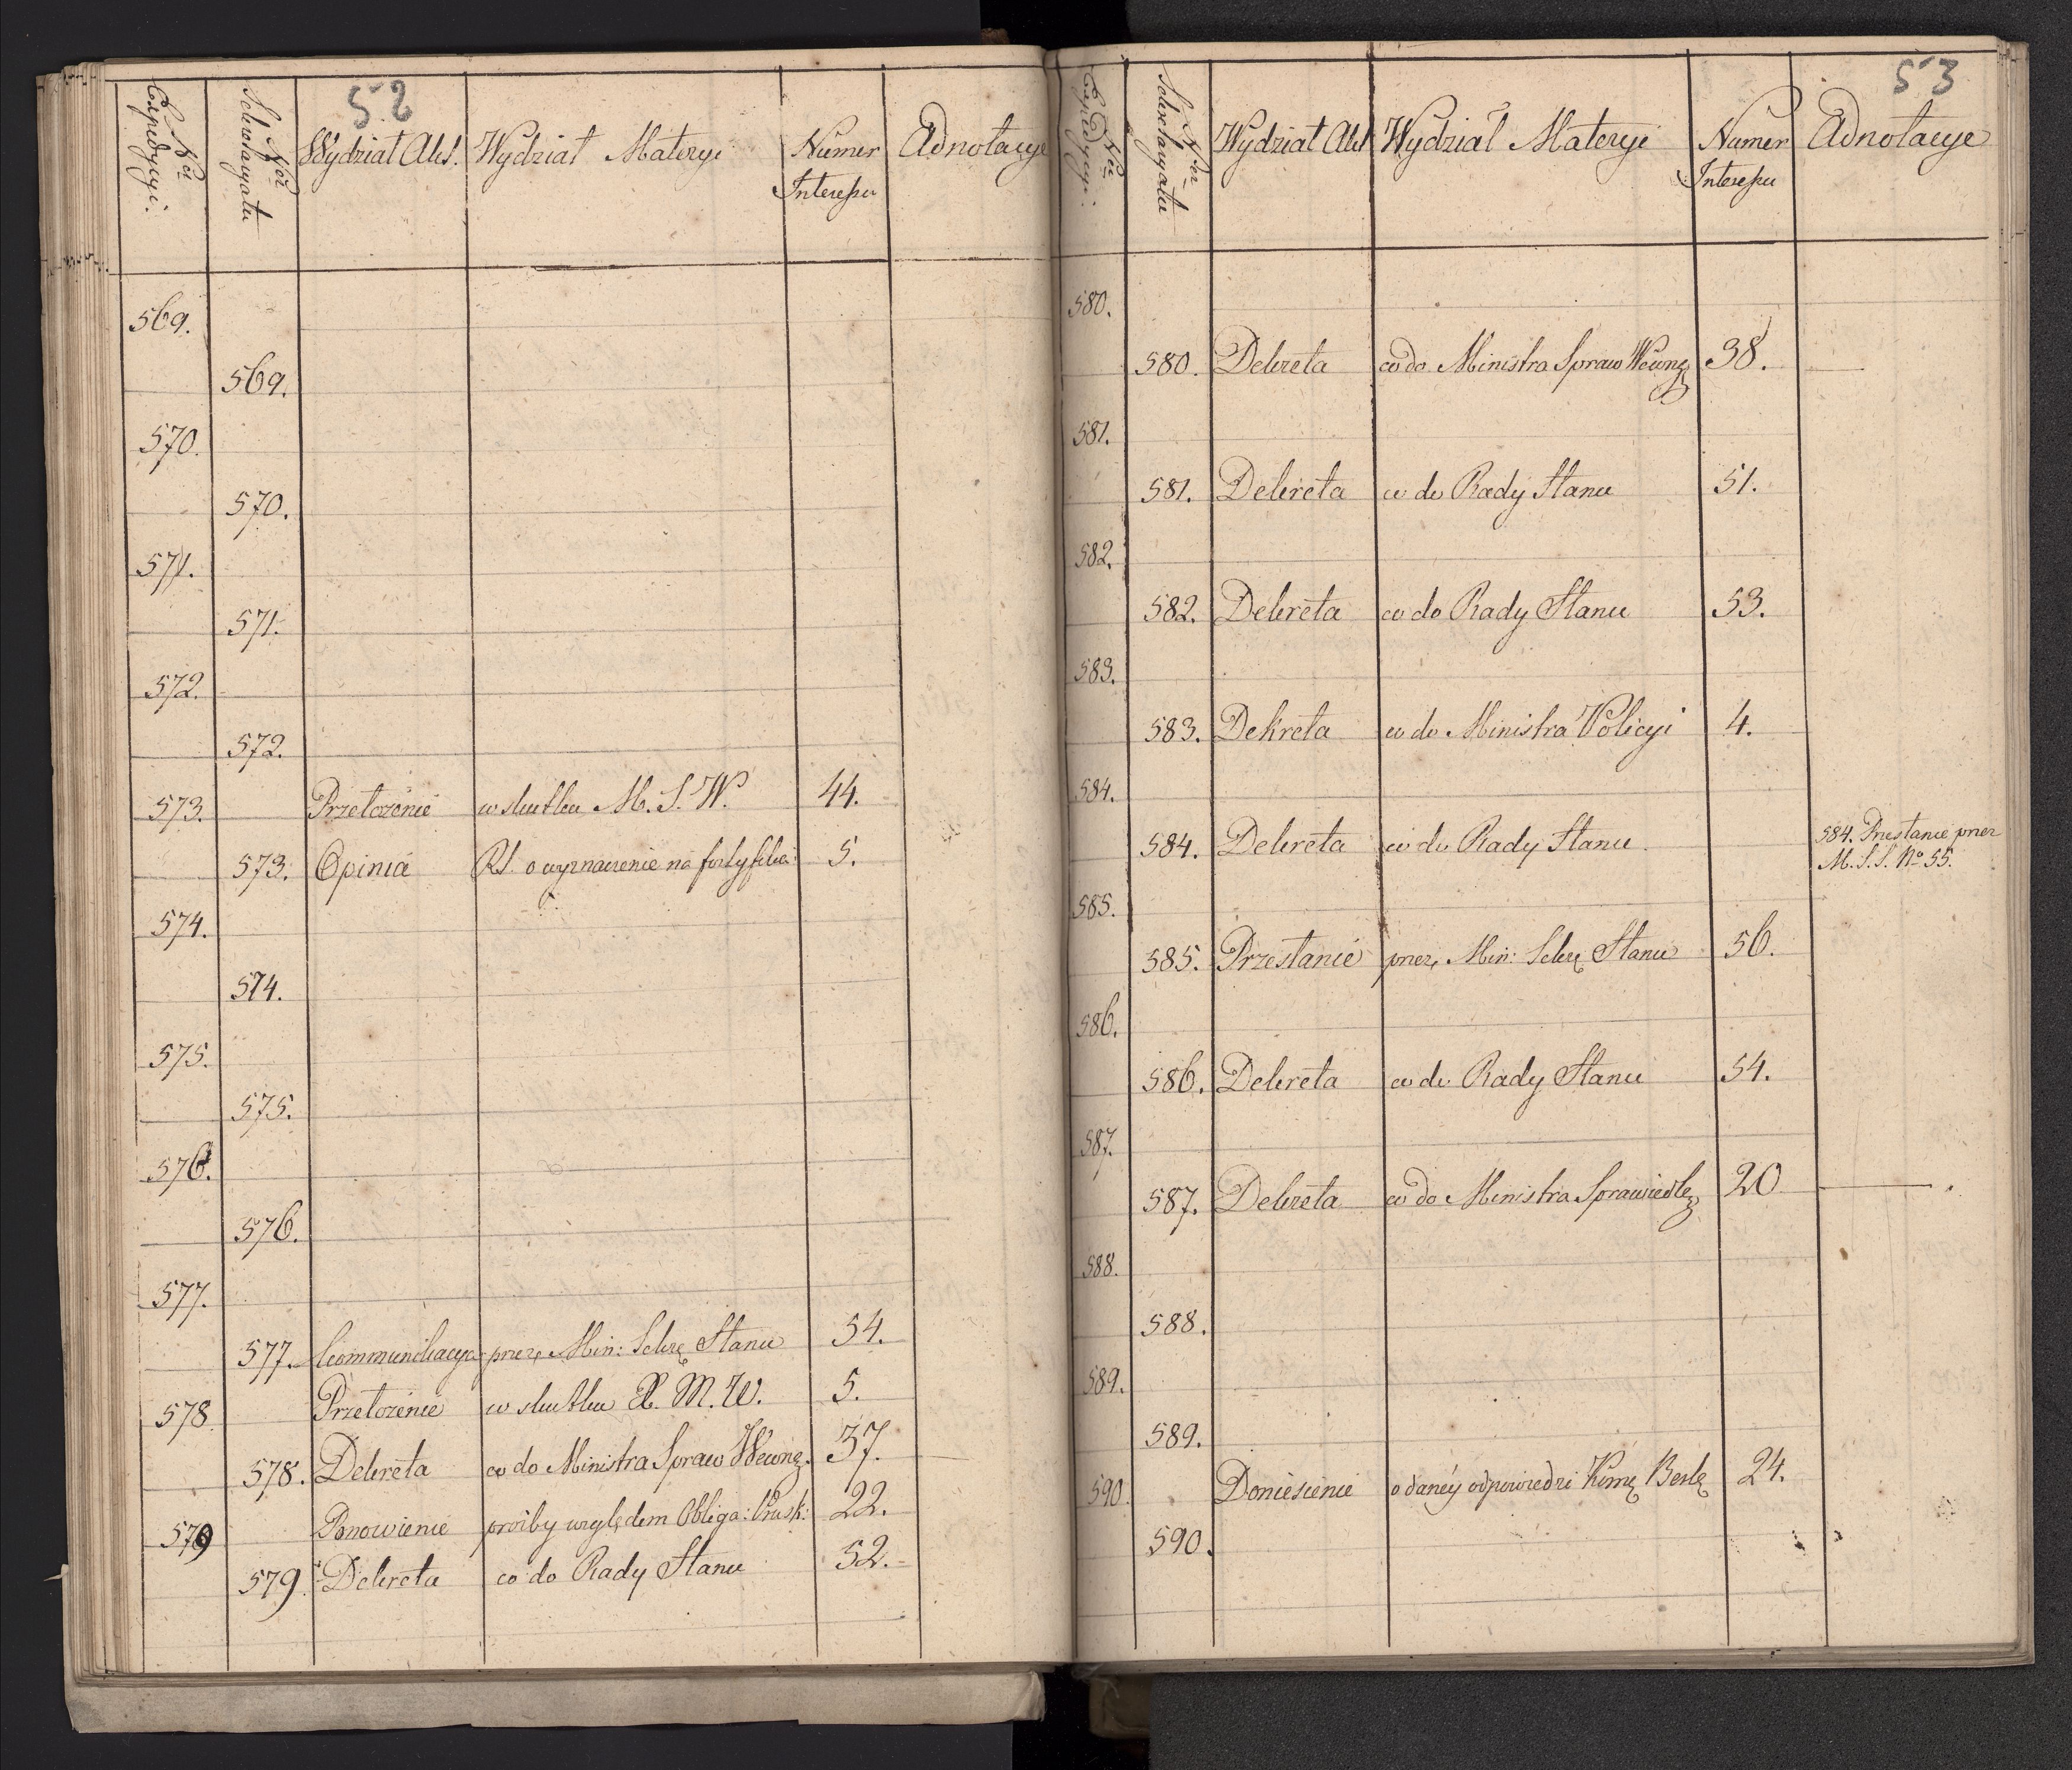 52
Nör Expedycyi. Nör Sekretaryatu Wydział Akt. Wydział Materyi Numer Interessu Adnotacye
569.
569.
570.
570.
571.
571.
572.
572.
573. Przełożenie w skutku M. S. W. 44.
573. Opinia RS. o wyznaczenie na fortyfika: 5.
574.
574.
575.
575.
576.
576.
577.
577. Communikacya przez Min: Sekrę Stanu 54.
578 Przełożenie w skutku X. M. W. 5.
578. Dekreta co do Ministra Spraw Wewnę. 37.
579 Ponowienie prośby względem Obliga: Prusk: 22.
579. Dekreta co do Rady Stanu 52.
53
Nör Expedycyi: Nör Sekretaryatu Wydział Akt Wydział Materyi Numer Interessu Adnotacye
580.
580. Dekreta co do Ministra Spraw Wewnę 38.
581.
581. Dekreta co do Rady Stanu 51.
582.
582. Dekreta co do Rady Stanu 53.
583.
583. Dekreta co do Ministra Policyi 4.
584.
584. Dekreta co do Rady Stanu. 584. Przesłanie przez
M. S. S. No 55.
585.
585. Przesłanie przez Min: Sekrę Stanu 56.
586.
586. Dekreta co do Rady Stanu 54.
587.
587. Dekreta co do Ministra Sprawiedlę 20
588.
588.
589.
589.
590. Doniesienie o daney odpowiedzi 24.
590.